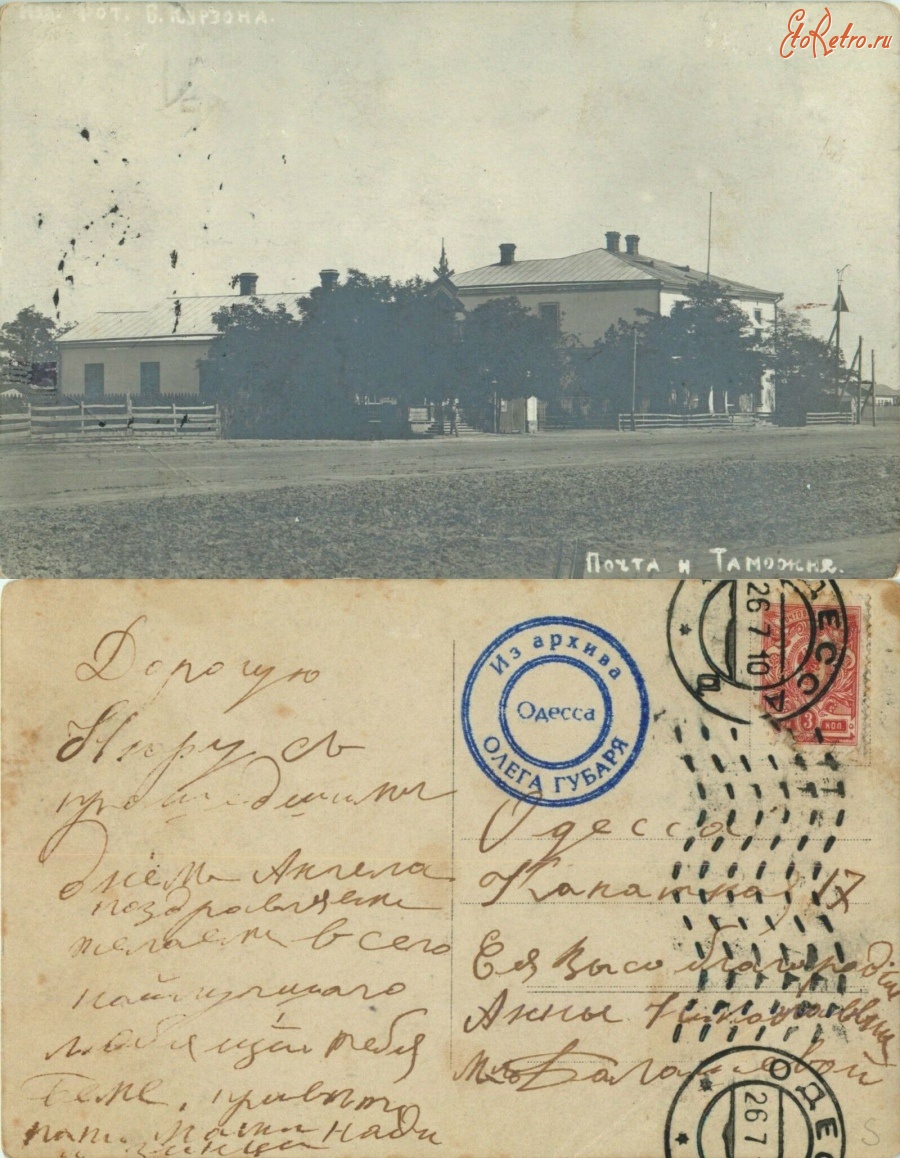 Изд. Фот. В. Курзона.
EtoRetro.ru
Почта и Таможня.
ОДЕССА
26 7 10
3 КОП
Из архива
Одесса
ОЛЕГА ГУБАРЯ
Дорогую
Нюру съ
прошедшимъ
днемъ Ангела
поздравляемъ
желаемъ всего
наилучшаго
любящiй тебя
привѣтъ
Нади
Одесса
Канатная 17
Ея Высокоблагородiю
Анны Николаевны
ОДЕС
26 7
S